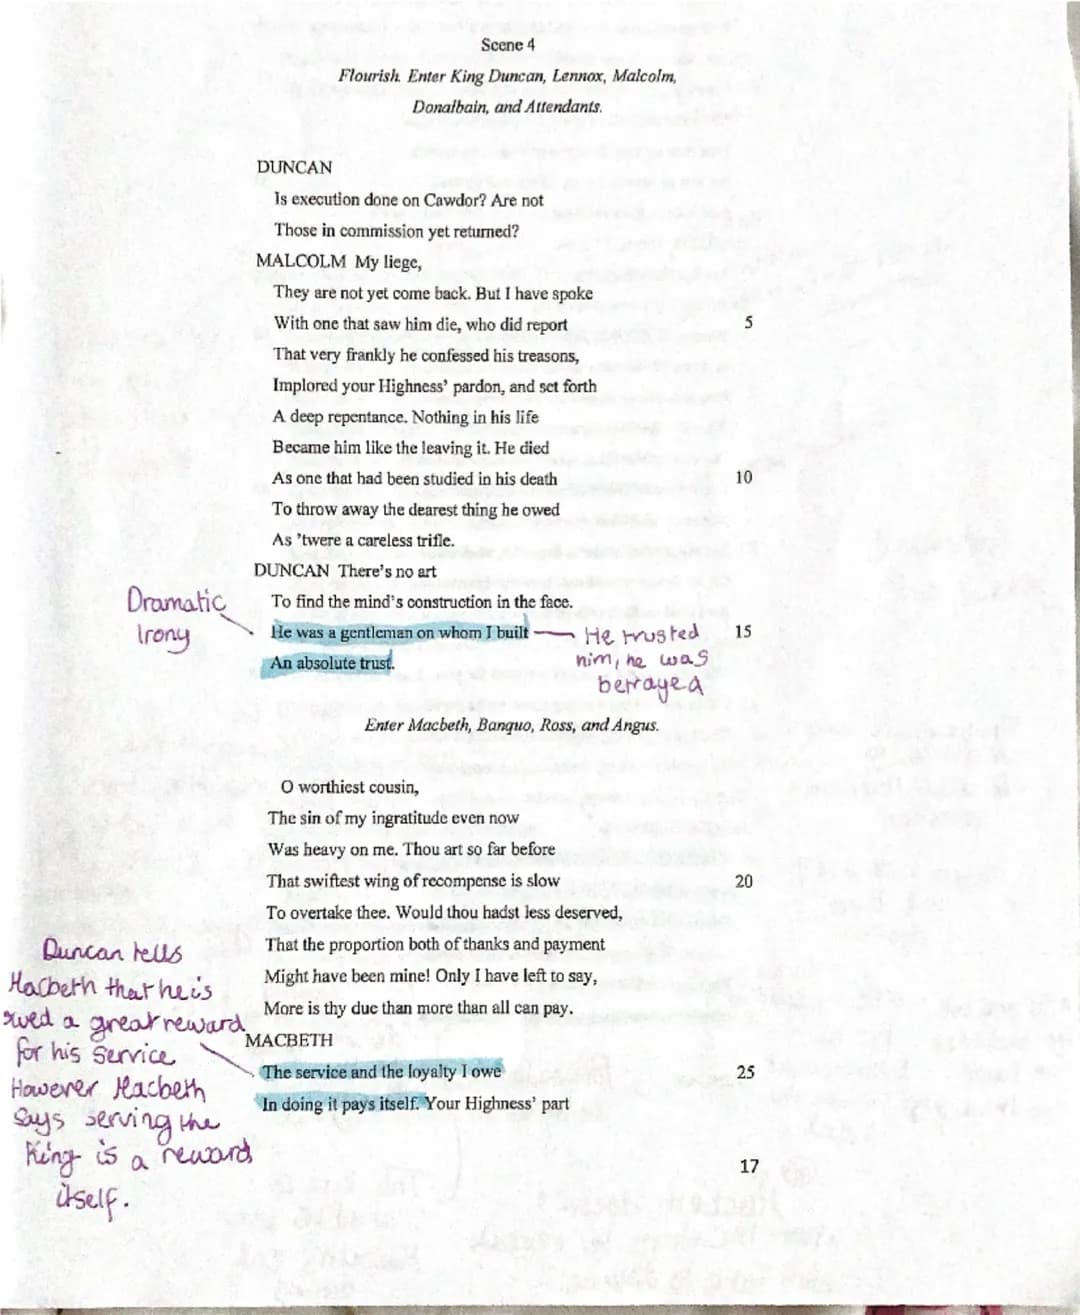 Scene 4
Flourish. Enter King Duncan, Lennox, Malcolm,
Donalbain, and Attendants.
DUNCAN
Is execution done on Cawdor? Are not
Those in commission yet returned?
MALCOLM My liege,
They are not yet come back. But I have spoke
With one that saw him die, who did report 5
That very frankly he confessed his treasons,
Implored your Highness' pardon, and set forth
A deep repentance. Nothing in his life
Became him like the leaving it. He died
As one that had been studied in his death 10
To throw away the dearest thing he owed
As 'twere a careless trifle.
DUNCAN There's no art
To find the mind's construction in the face.
He was a gentleman on whom I built 15
An absolute trust.
Dramatic
Irony
He trusted
him, he was
betrayed
Enter Macbeth, Banquo, Ross, and Angus.
O worthiest cousin,
The sin of my ingratitude even now
Was heavy on me. Thou art so far before
That swiftest wing of recompense is slow 20
To overtake thee. Would thou hadst less deserved,
That the proportion both of thanks and payment
Might have been mine! Only I have left to say,
More is thy due than more than all can pay.
MACBETH
The service and the loyalty I owe 25
In doing it pays itself. Your Highness' part
Duncan tells
Macbeth that he is
a great reward
for his service
However Macbeth
says serving the
King is a reward
itself.
17